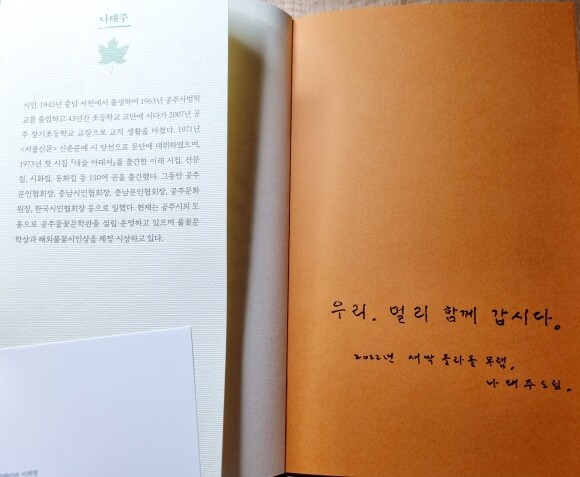 나태주
시인. 1945년 충남 서천에서 출생하여 1963년 공주사범학
교를 졸업하고 43년간 초등학교 교단에 서다가 2007년 공
주 장기초등학교 교장으로 교직 생활을 마쳤다. 1971년
<서울신문> 신춘문예 시 당선으로 문단에 데뷔하였으며,
1973년 첫 시집 『대숲 아래서』를 출간한 이래 시집, 산문
집, 시화집, 동화집 등 150여 권을 출간했다. 그동안 공주
문인협회장, 충남시인협회장, 충남문인협회장, 공주문화
원장, 한국시인협회장 등으로 일했다. 현재는 공주시의 도
움으로 공주풀꽃문학관을 설립·운영하고 있으며 풀꽃문
학상과 해외풀꽃시인상을 제정·시상하고 있다.
우리. 멀리 함께 갑시다.
2022년 새싹 올라올 무렵,
나태주 드림.